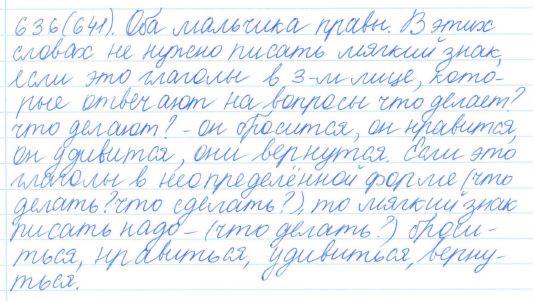 636(641). Оба мальчика правы. В этих
словах не нужно писать мягкий знак,
если это глаголы в 3-м лице, кото-
рые отвечают на вопросы что делает?
что делают? - он бросится, он нравится,
он удивится, они вернутся. Если это
глаголы в неопределённой форме (что
делать? что сделать?), то мягкий знак
писать надо - (что делать?) броси-
ться, нравиться, удивиться, верну-
ться.